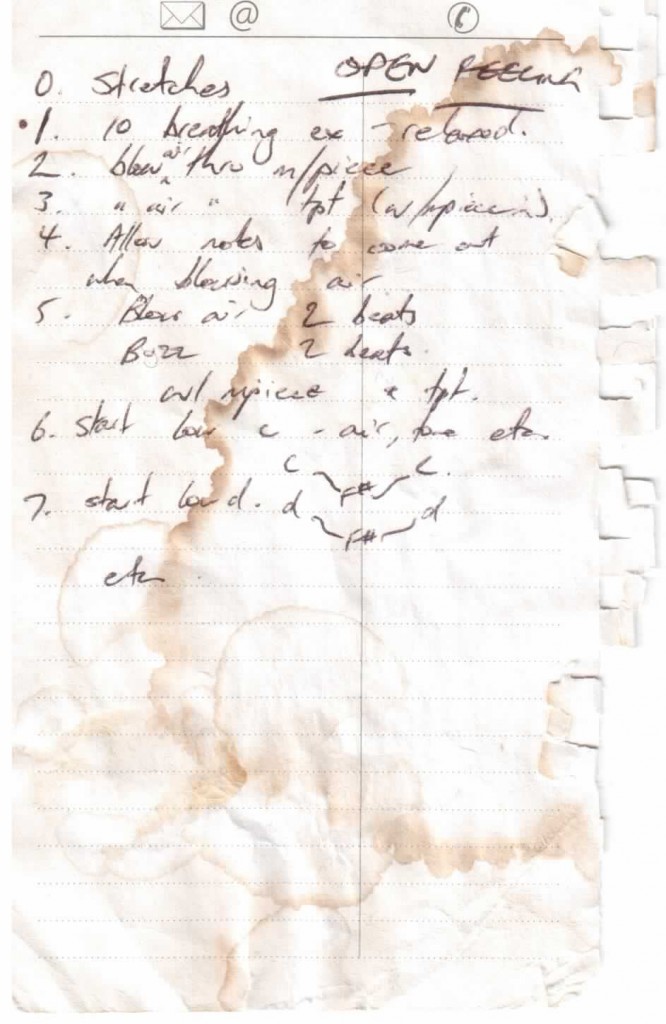 @
OPEN FEELING
0. Stretches
1. 10 breathing ex - relaxed.
2. blow air thru m/piece
3. " air " tpt (w/mpiece in)
4. Allow notes to come out
when blowing air
5. Blow air 2 beats
Buzz 2 beats.
w/ mpiece & tpt.
6. Start low c - air, tone etc.
C F# C.
7. start low d. d F# d
etc.